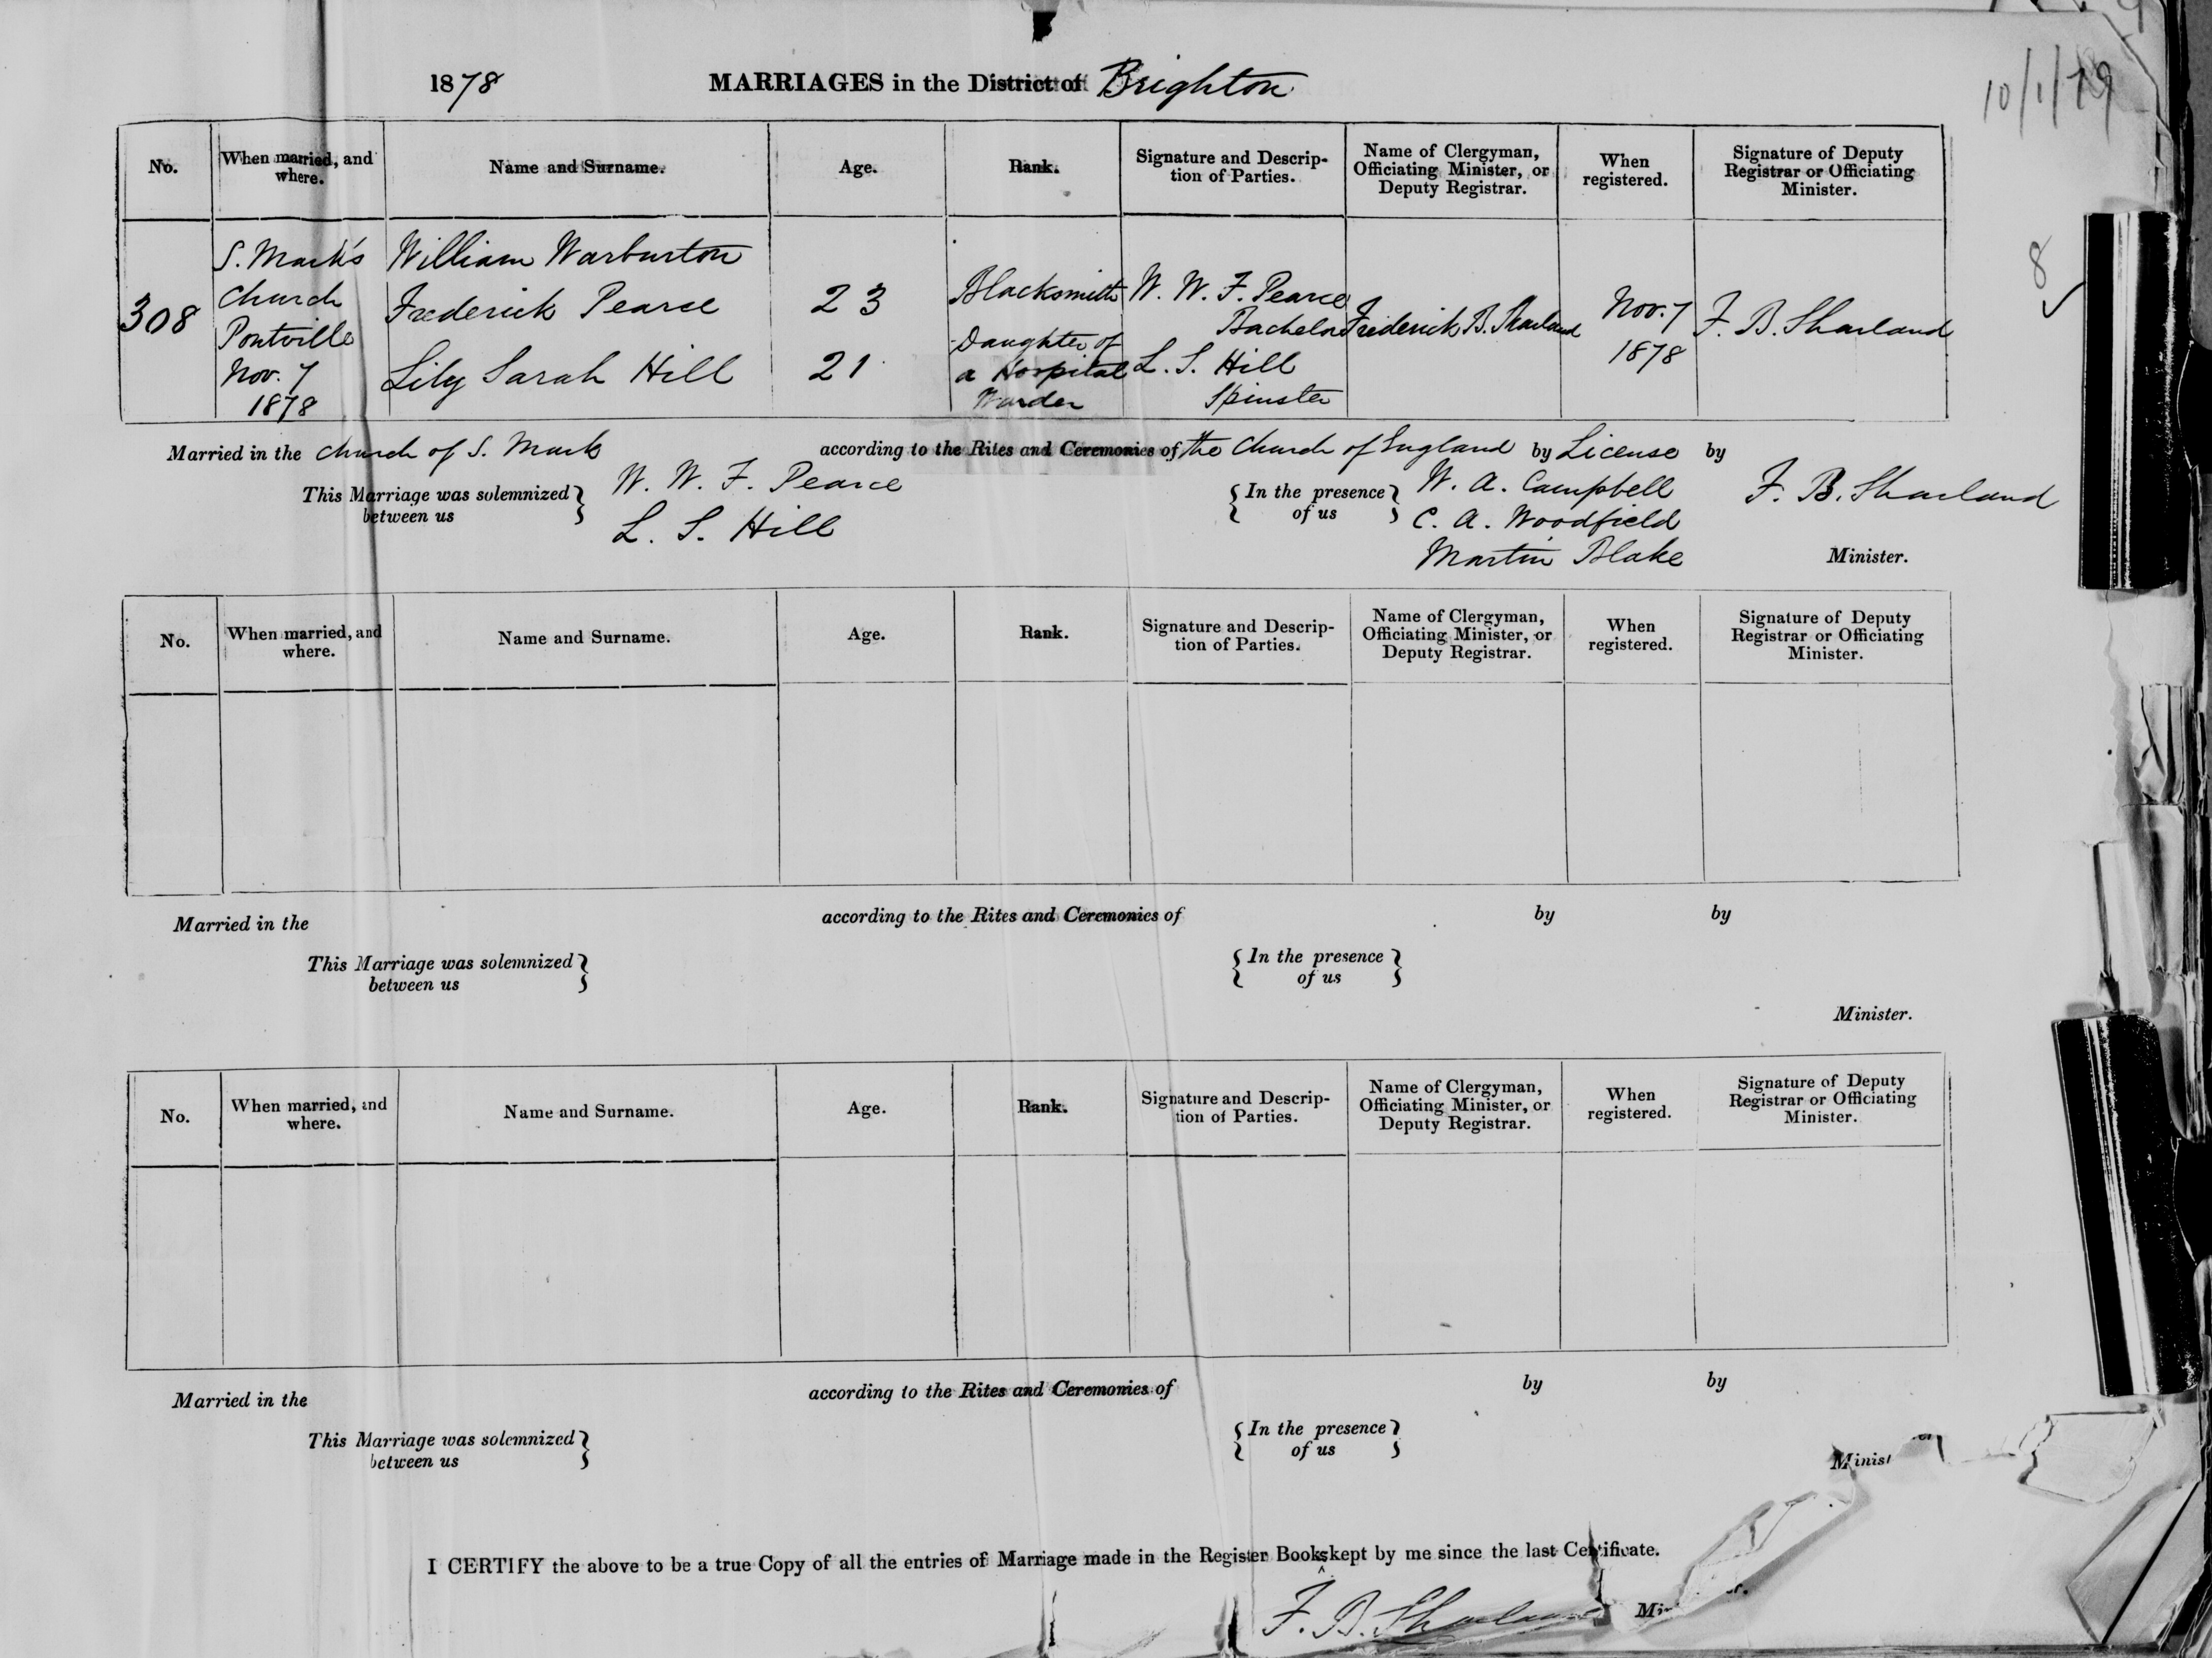 10/1/79
1878 MARRIAGES in the District of Brighton
No. When married, and where. Name and Surname. Age. Rank. Signature and Description of Parties. Name of Clergyman, Officiating Minister, or Deputy Registrar. When registered. Signature of Deputy Registrar or Officiating Minister.
308
S. Mark's
Church
Pontville
Nov. 7
1878
William Warburton
Frederick Pearce
Lily Sarah Hill
23
21
Blacksmith
Daughter of
a Hospital
Warder
W. W. F. Pearce
Bachelor
L. S. Hill
Spinster
Frederick B. Sharland
Nov. 7
1878
F. B. Sharland
8
Married in the Church of S. Mark according to the Rites and Ceremonies of the Church of England by License by
This Marriage was solemnized
between us
W. W. F. Pearce
L. S. Hill
In the presence
of us
W. A. Campbell
C. A. Woodfield
Martin Blake
F. B. Sharland
Minister.
No. When married, and where. Name and Surname. Age. Rank. Signature and Description of Parties. Name of Clergyman, Officiating Minister, or Deputy Registrar. When registered. Signature of Deputy Registrar or Officiating Minister.
Married in the according to the Rites and Ceremonies of by by
This Marriage was solemnized
between us
In the presence
of us
Minister.
No. When married, and where. Name and Surname. Age. Rank. Signature and Description of Parties. Name of Clergyman, Officiating Minister, or Deputy Registrar. When registered. Signature of Deputy Registrar or Officiating Minister.
Married in the according to the Rites and Ceremonies of by by
This Marriage was solemnized
between us
In the presence
of us
Minist
I CERTIFY the above to be a true Copy of all the entries of Marriage made in the Register Books kept by me since the last Certificate.
F. B. Sharland